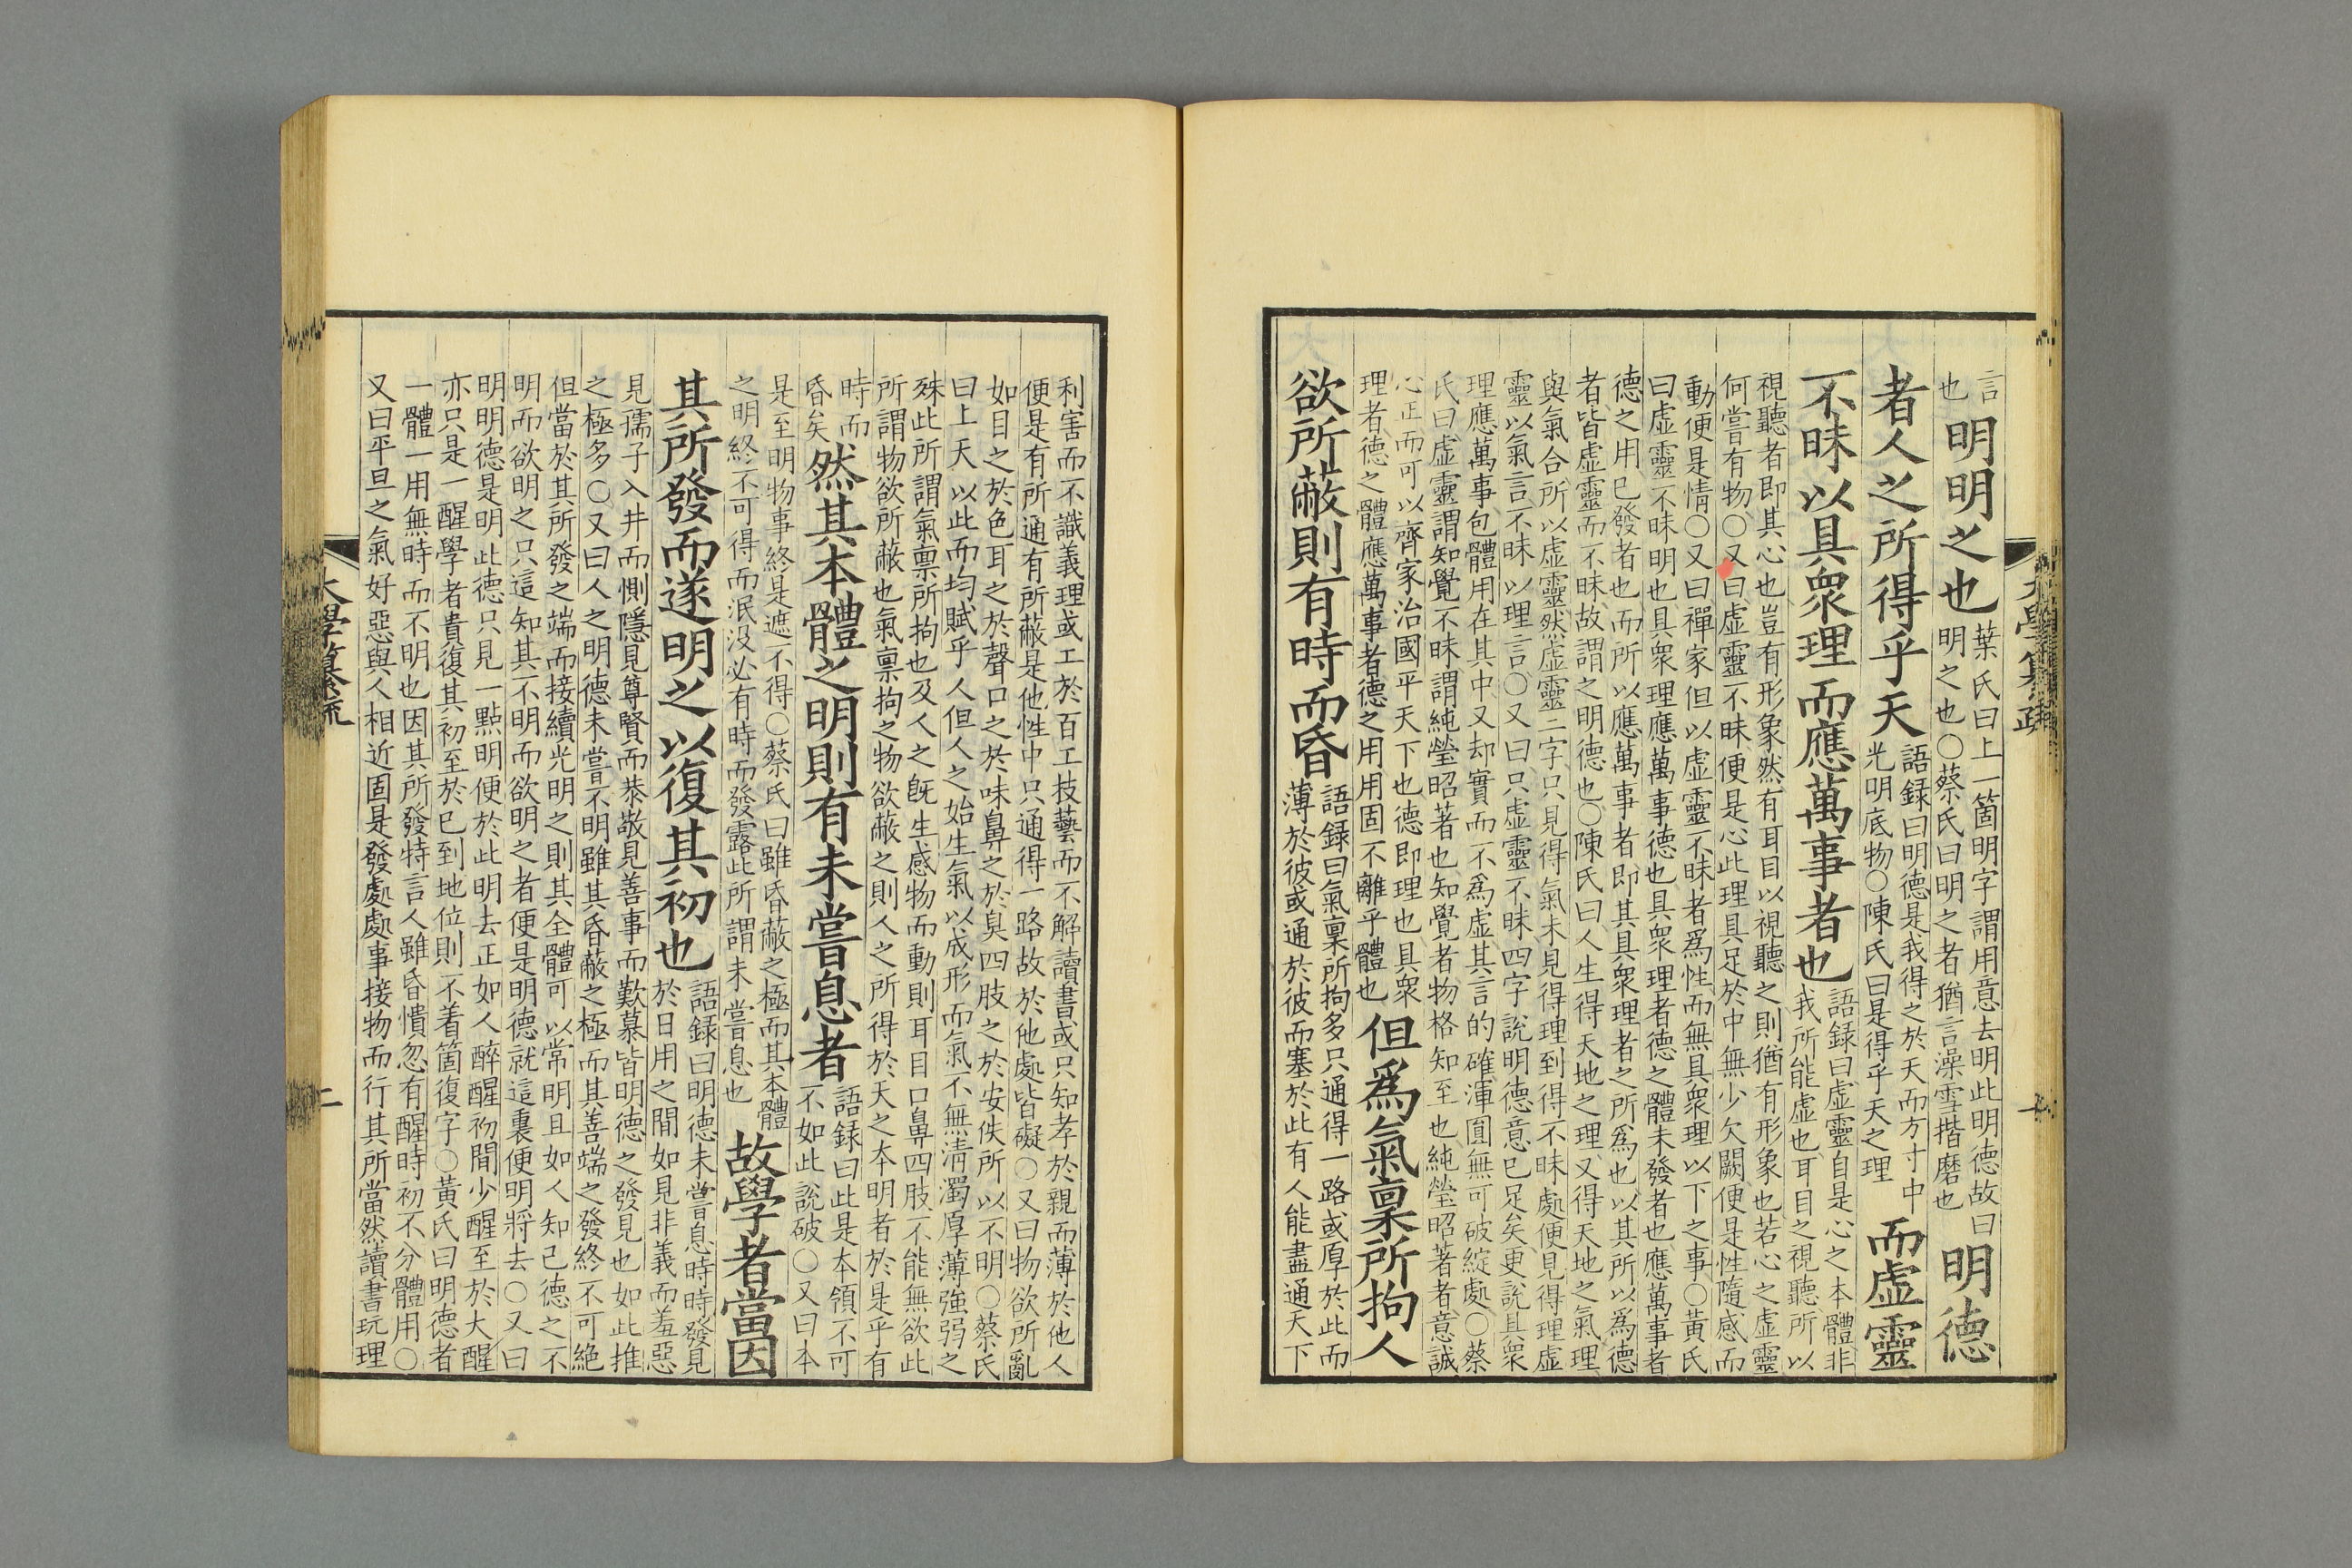 言
也
明明之也
葉氏曰上一箇明字謂用意去明此明德故曰
明之也○蔡氏曰明之者猶言澡雪揩磨也
明德
者人之所得乎天
語録曰明德是我得之於天而方寸中
光明底物○陳氏曰是得乎天之理
而虚靈
不昧以具衆理而應萬事者也
語録曰虚靈自是心之本體非
我所能虚也耳目之視聽所以
視聽者即其心也豈有形象然有耳目以視聽之則猶有形象也若心之虚靈
何嘗有物○又曰虚靈不昧便是心此理具足於中無少欠闕便是性隨感而
動便是情○又曰禪家但以虚靈不昧者爲性而無具衆理以下之事○黃氏
曰虚靈不昧明也具衆理應萬事德也具衆理者德之體未發者也應萬事者
德之用已發者也而所以應萬事者即其具衆理者之所爲也以其所以爲德
者皆虚靈而不昧故謂之明德也○陳氏曰人生得天地之理又得天地之氣理
與氣合所以虚靈然虚靈二字只見得氣未見得理到得不昧處便見得理虚
靈以氣言不昧以理言○又曰只虚靈不昧四字說明德意已足矣更說具衆
理應萬事包體用在其中又却實而不爲虚其言的確渾圓無可破綻處○蔡
氏曰虚靈謂知覺不昧謂純瑩昭著也知覺者物格知至也純瑩昭著者意誠
心正而可以齊家治國平天下也德即理也具衆
理者德之體應萬事者德之用用固不離乎體也
但爲氣稟所拘人
欲所蔽則有時而昏
語録曰氣稟所拘多只通得一路或厚於此而
薄於彼或通於彼而塞於此有人能盡通天下
大學纂疏
利害而不識義理或工於百工技藝而不解讀書或只知孝於親而薄於他人
便是有所通有所蔽是他性中只通得一路故於他處皆礙○又曰物欲所亂
如目之於色耳之於聲口之於味鼻之於臭四肢之於安佚所以不明○蔡氏
曰上天以此而均賦乎人但人之始生氣以成形而氣不無清濁厚薄強弱之
殊此所謂氣稟所拘也及人之既生感物而動則耳目口鼻四肢不能無欲此
所謂物欲所蔽也氣稟拘之物欲蔽之則人之所得於天之本明者於是乎有
時而
昏矣
然其本體之明則有未嘗息者
語録曰此是本領不可
不如此說破○又曰本
是至明物事終是遮不得○蔡氏曰雖昏蔽之極而其本體
之明終不可得而泯没必有時而發露此所謂未嘗息也
故學者當因
其所發而遂明之以復其初也
語録曰明德未嘗息時時發見
於日用之間如見非義而羞惡
見孺子入井而惻隱見尊賢而恭敬見善事而歎慕皆明德之發見也如此推
之極多○又曰人之明德未嘗不明雖其昏蔽之極而其善端之發終不可絶
但當於其所發之端而接續光明之則其全體可以常明且如人知己德之不
明而欲明之只這知其不明而欲明之者便是明德就這裏便明將去○又曰
明明德是明此德只見一點明便於此明去正如人醉醒初間少醒至於大醒
亦只是一醒學者貴復其初至於已到地位則不着箇復字○黃氏曰明德者
一體一用無時而不明也因其所發特言人雖昏憒忽有醒時初不分體用○
又曰平旦之氣好惡與人相近固是發處處事接物而行其所當然讀書玩理
大學纂疏
二